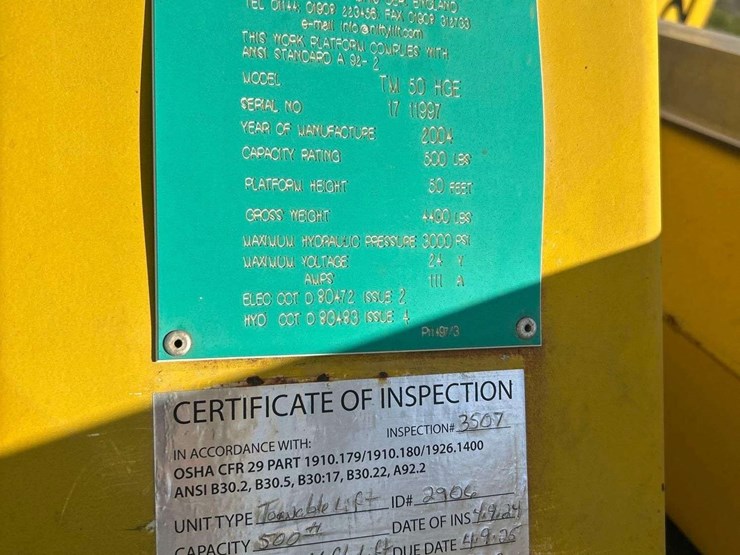 ENGLAND
TEL 01144 01909 223456 FAX 01909 312733
e-mail info@niftylift.com
THIS WORK PLATFORM COMPLIES WITH
ANSI STANDARD A 92-2
MODEL TM 50 HGE
SERIAL NO 17 11997
YEAR OF MANUFACTURE 2004
CAPACITY RATING 500 LBS
PLATFORM HEIGHT 50 FEET
GROSS WEIGHT 4400 LBS
MAXIMUM HYDRAULIC PRESSURE 3000 PSI
MAXIMUM VOLTAGE 24 V
AMPS 111 A
ELEC CCT D 80472 ISSUE 2
HYD CCT D 80480 ISSUE 4
CERTIFICATE OF INSPECTION
IN ACCORDANCE WITH: INSPECTION# 3507
OSHA CFR 29 PART 1910.179/1910.180/1926.1400
ANSI B30.2, B30.5, B30:17, B30.22, A92.2
UNIT TYPE Towable Lift ID# 2906
CAPACITY 500# DATE OF INS 4.9.24
DUE DATE 4.9.25